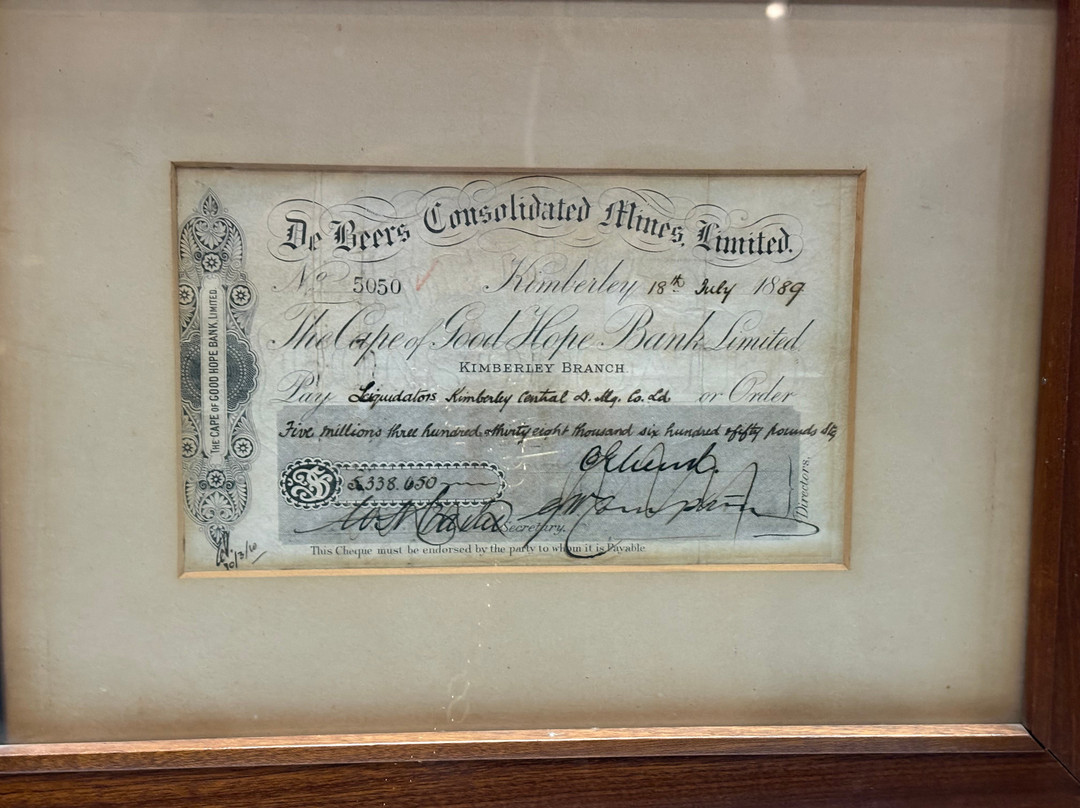 De Beers Consolidated Mines, Limited.
No 5050 Kimberley 18th July 1889
The Cape of Good Hope Bank Limited.
KIMBERLEY BRANCH.
Pay Liquidators Kimberley Central D. Mg. Co. Ld or Order
Five millions three hundred & thirty eight thousand six hundred & fifty pounds Stg
5,338,650
Directors.
Secretary.
This Cheque must be endorsed by the party to whom it is Payable
THE CAPE OF GOOD HOPE BANK, LIMITED.